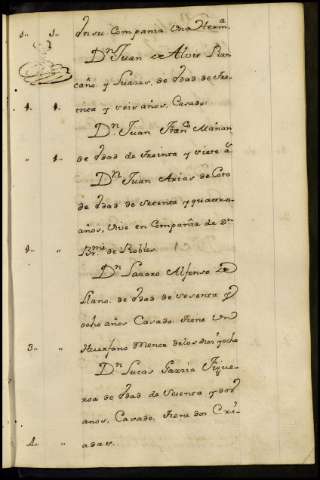 3.. 3.. En su Compania Una Herm.ª
D.n Juan de Alvir
caño, y Suares, de Edad de Tre-
4. 4. inta y seis años, Casado.
D.n Juan Fran.co Mañan
4. 4. de Edad de Treinta y siete a.s
D.n Juan Arias de Coto
de Edad de Setenta y quatro
años, Vive en Compañia de D.n
4. „ B.mé de Robles.
D.n Lazaro Alfonso de
Llano, de Edad de Sesenta y
ocho años Casado, tiene Un
3.. „ Huerfano Menor de los diez y ocho
D.n Lucas Garzia Figue-
roa de Edad de Sesenta y dos
anos, Casado, tiene dos Cri-
4.. „ adas.